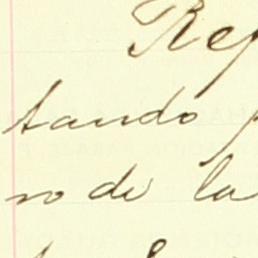 Rep
tando p
no de la